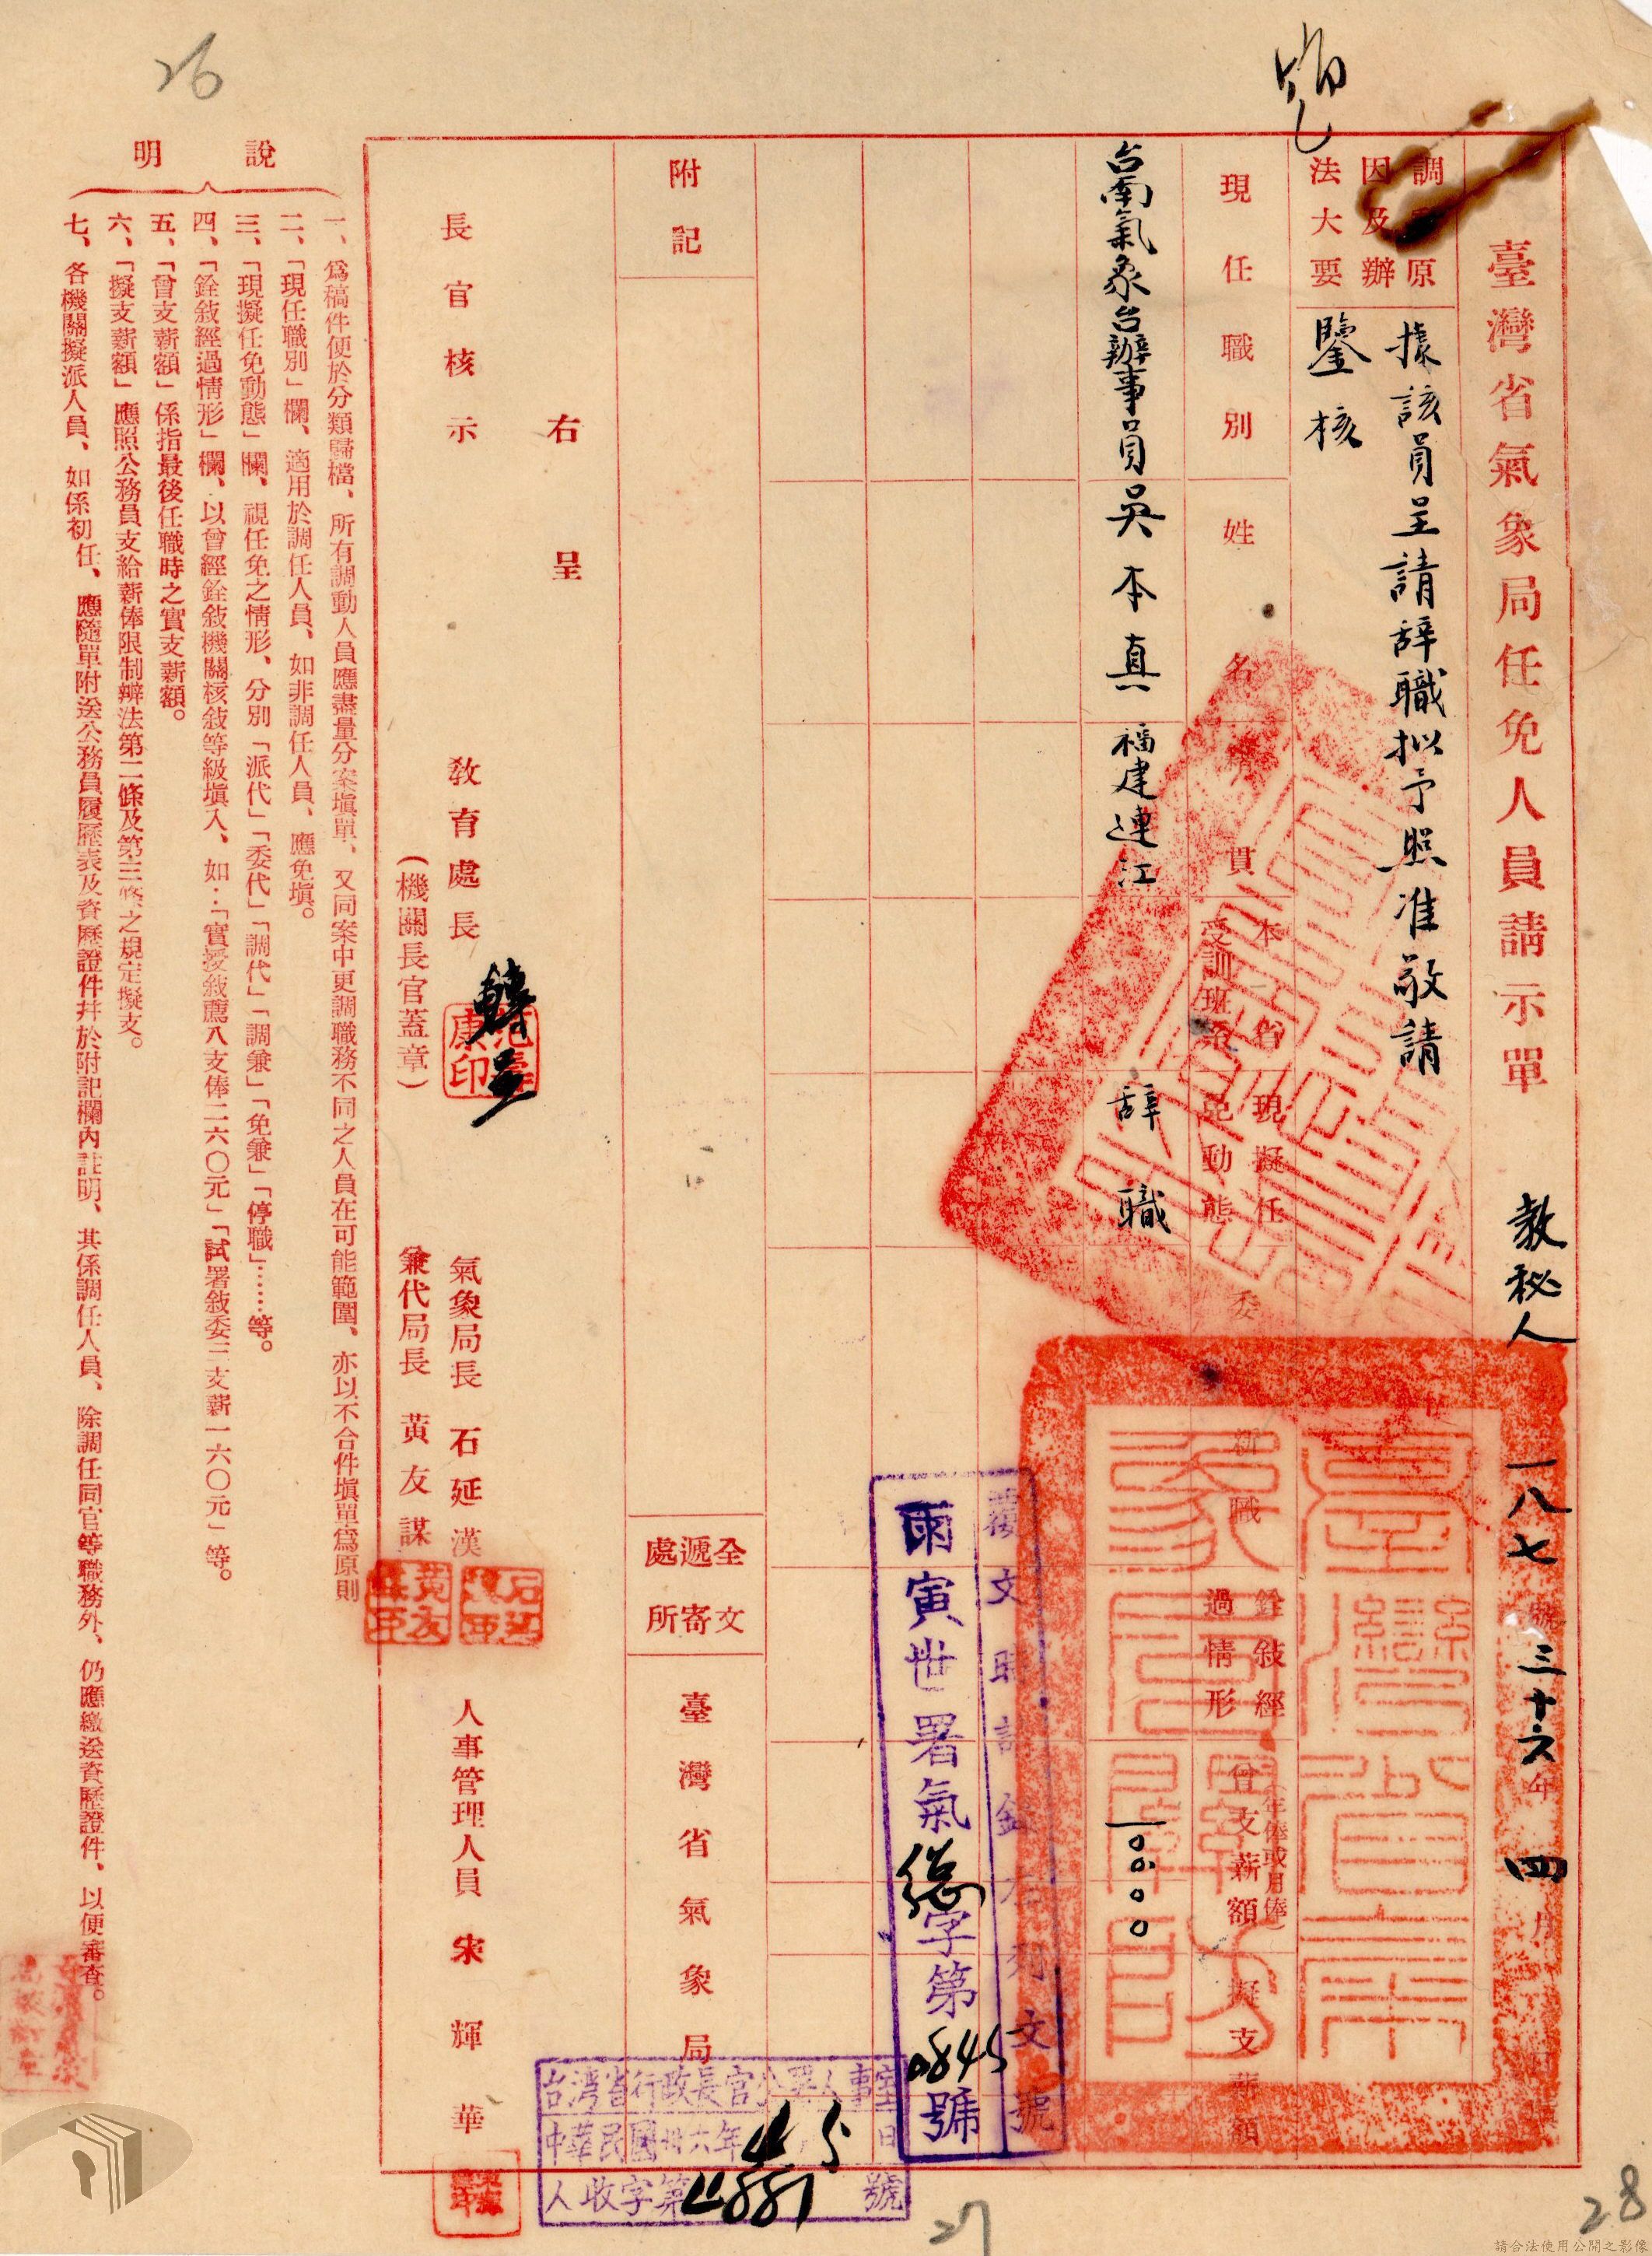 26
28
27
臺灣省氣象局任免人員請示單
教秘人
一八七號
三十六年四月
調 原因及辦法大要
據該員呈請辞職拟予照准敬請
鑒核
現任職別
姓名
籍貫
本省受訓班系
現擬任免動態
新職
銓敍經過情形
曾支薪額
(年俸或月俸)
擬支薪額
台南氣象台辦事員
吳本真
福建連江
辞職
一〇〇.〇〇
覆文時請錄右列文號
雨寅世署氣總字第0845號
附記
全文遞寄處所
臺灣省氣象局
右呈
教育處長
轉呈
氣象局長 石延漢
人事管理人員 宋輝華
長官核示
(機關長官蓋章)
兼代局長 黃友謀
台湾省行政長官公署人事室
中華民國卅六年4 5日
人收字第4887號
說明
一、爲稿件便於分類歸檔、所有調動人員應盡量分案塡單、又同案中更調職務不同之人員在可能範圍、亦以不合件塡單爲原則
二、「現任職別」欄、適用於調任人員、如非調任人員、應免塡。
三、「現擬任免動態」欄、視任免之情形、分別「派代」「委代」「調代」「調兼」「免兼」「停職」……等。
四、「銓敍經過情形」欄、以曾經銓敍機關核敍等級塡入、如:「實授敍薦八支俸二六〇元」「試署敍委三支薪一六〇元」等。
五、「曾支薪額」係指最後任職時之實支薪額。
六、「擬支薪額」應照公務員支給薪俸限制辦法第二條及第三條之規定擬支。
七、各機關擬派人員、如係初任、應隨單附送公務員履歷表及資歷證件幷於附記欄內註明、其係調任人員、除調任同官等職務外、仍應繳送資歷證件、以便審查。
請合法使用公開之影像